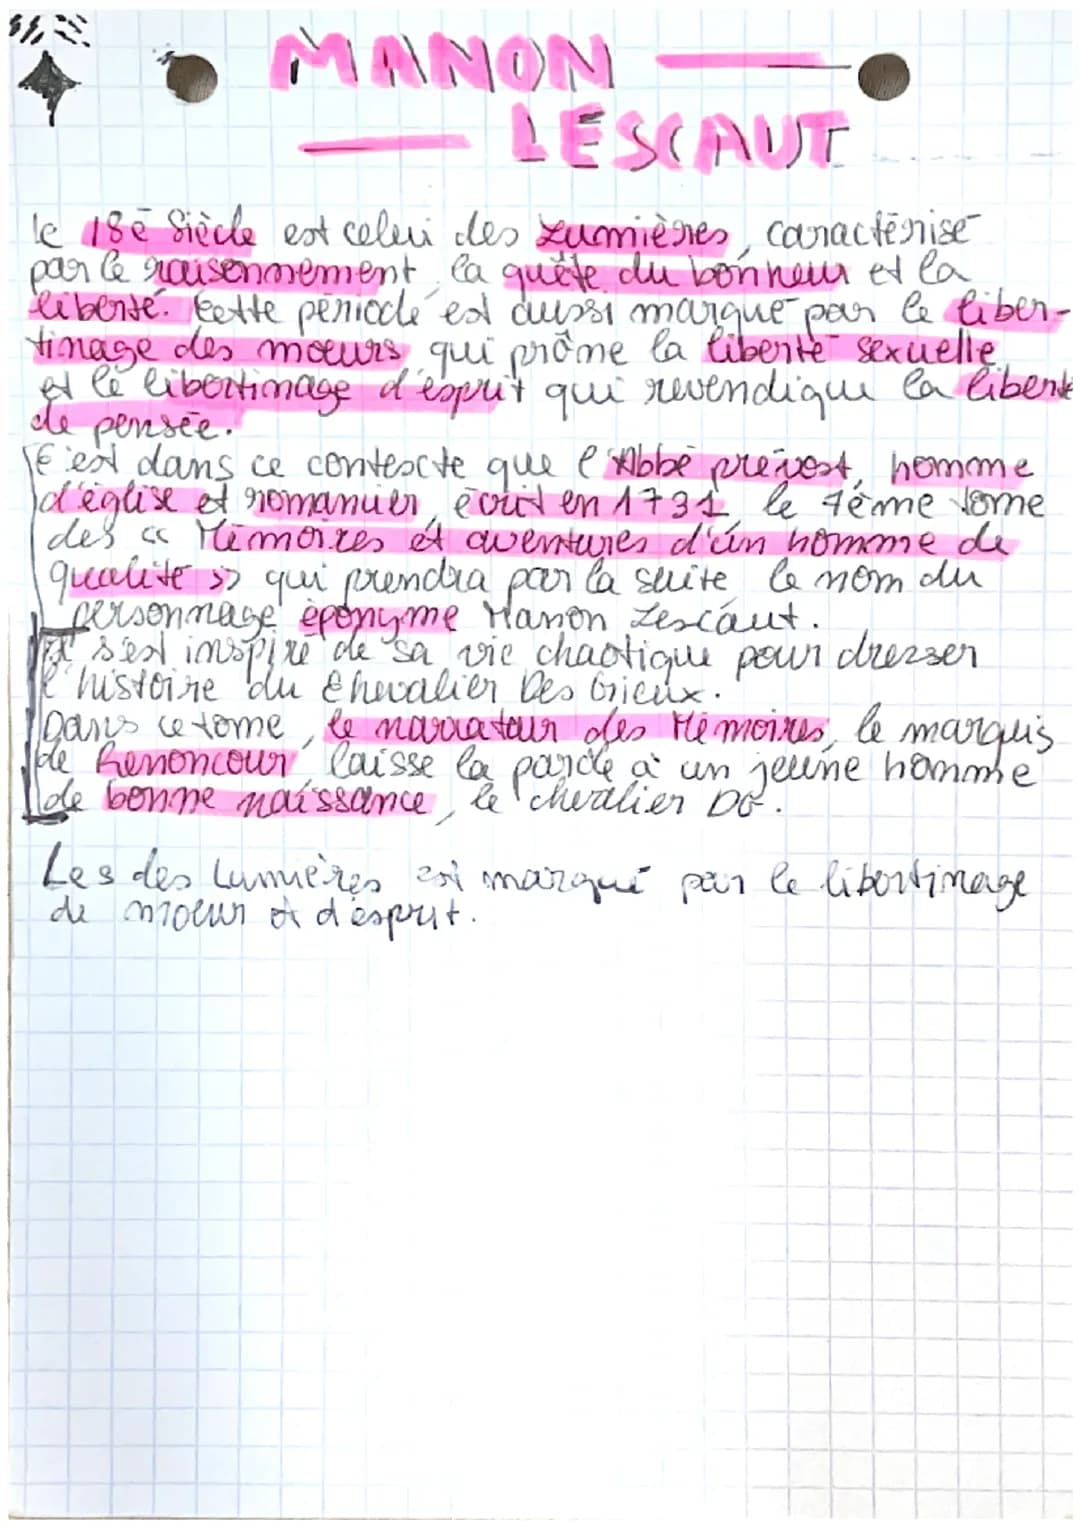 MANON
LESCAUT
le 18è Siècle est celui des Lumières, caractérisé
par le raisonnement, la quête du bonheur et la
liberté. Cette période est aussi marqué par le liber-
tinage des mœurs, qui prône la liberté sexuelle,
et le libertinage d'esprit qui revendique la liberté
de pensée.
C'est dans ce contescte que l'Abbé prévost, homme
d'église et romancier, écrit en 1731, le 7ème tome
des << Mémoires et aventures d'un homme de
qualité >> qui prendra par la suite, le nom du
personnage éponyme Manon Lescaut.
Il s'est inspiré de sa vie chaotique pour dresser
l'histoire du Chevalier Des Grieux.
Dans ce tome, le narrateur des Mémoires, le marquis
de Renoncour, laisse la parole à un jeune homme
de bonne naissance, le chevalier DG.
Les des Lumières est marqué par le libertinage
de moeur et d'esprit.